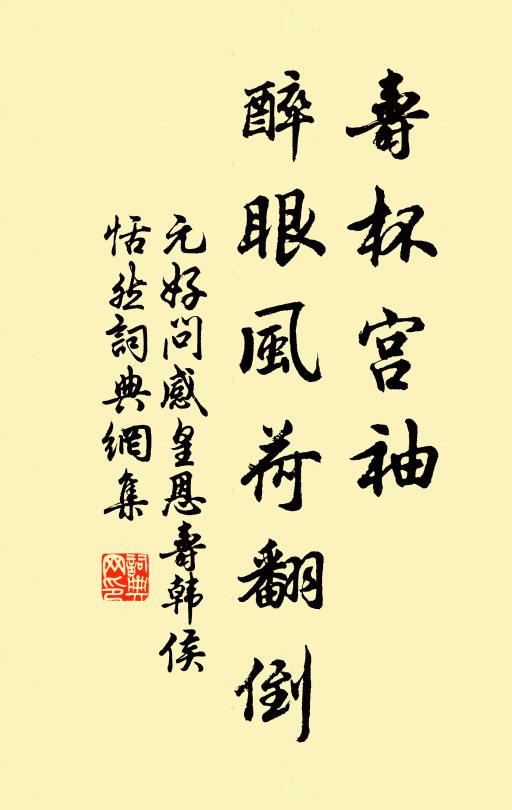 壽杯宫袖
醉眼風荷翻倒
元好问感皇恩壽韩侯
恬然詞典網集
詞典
网印